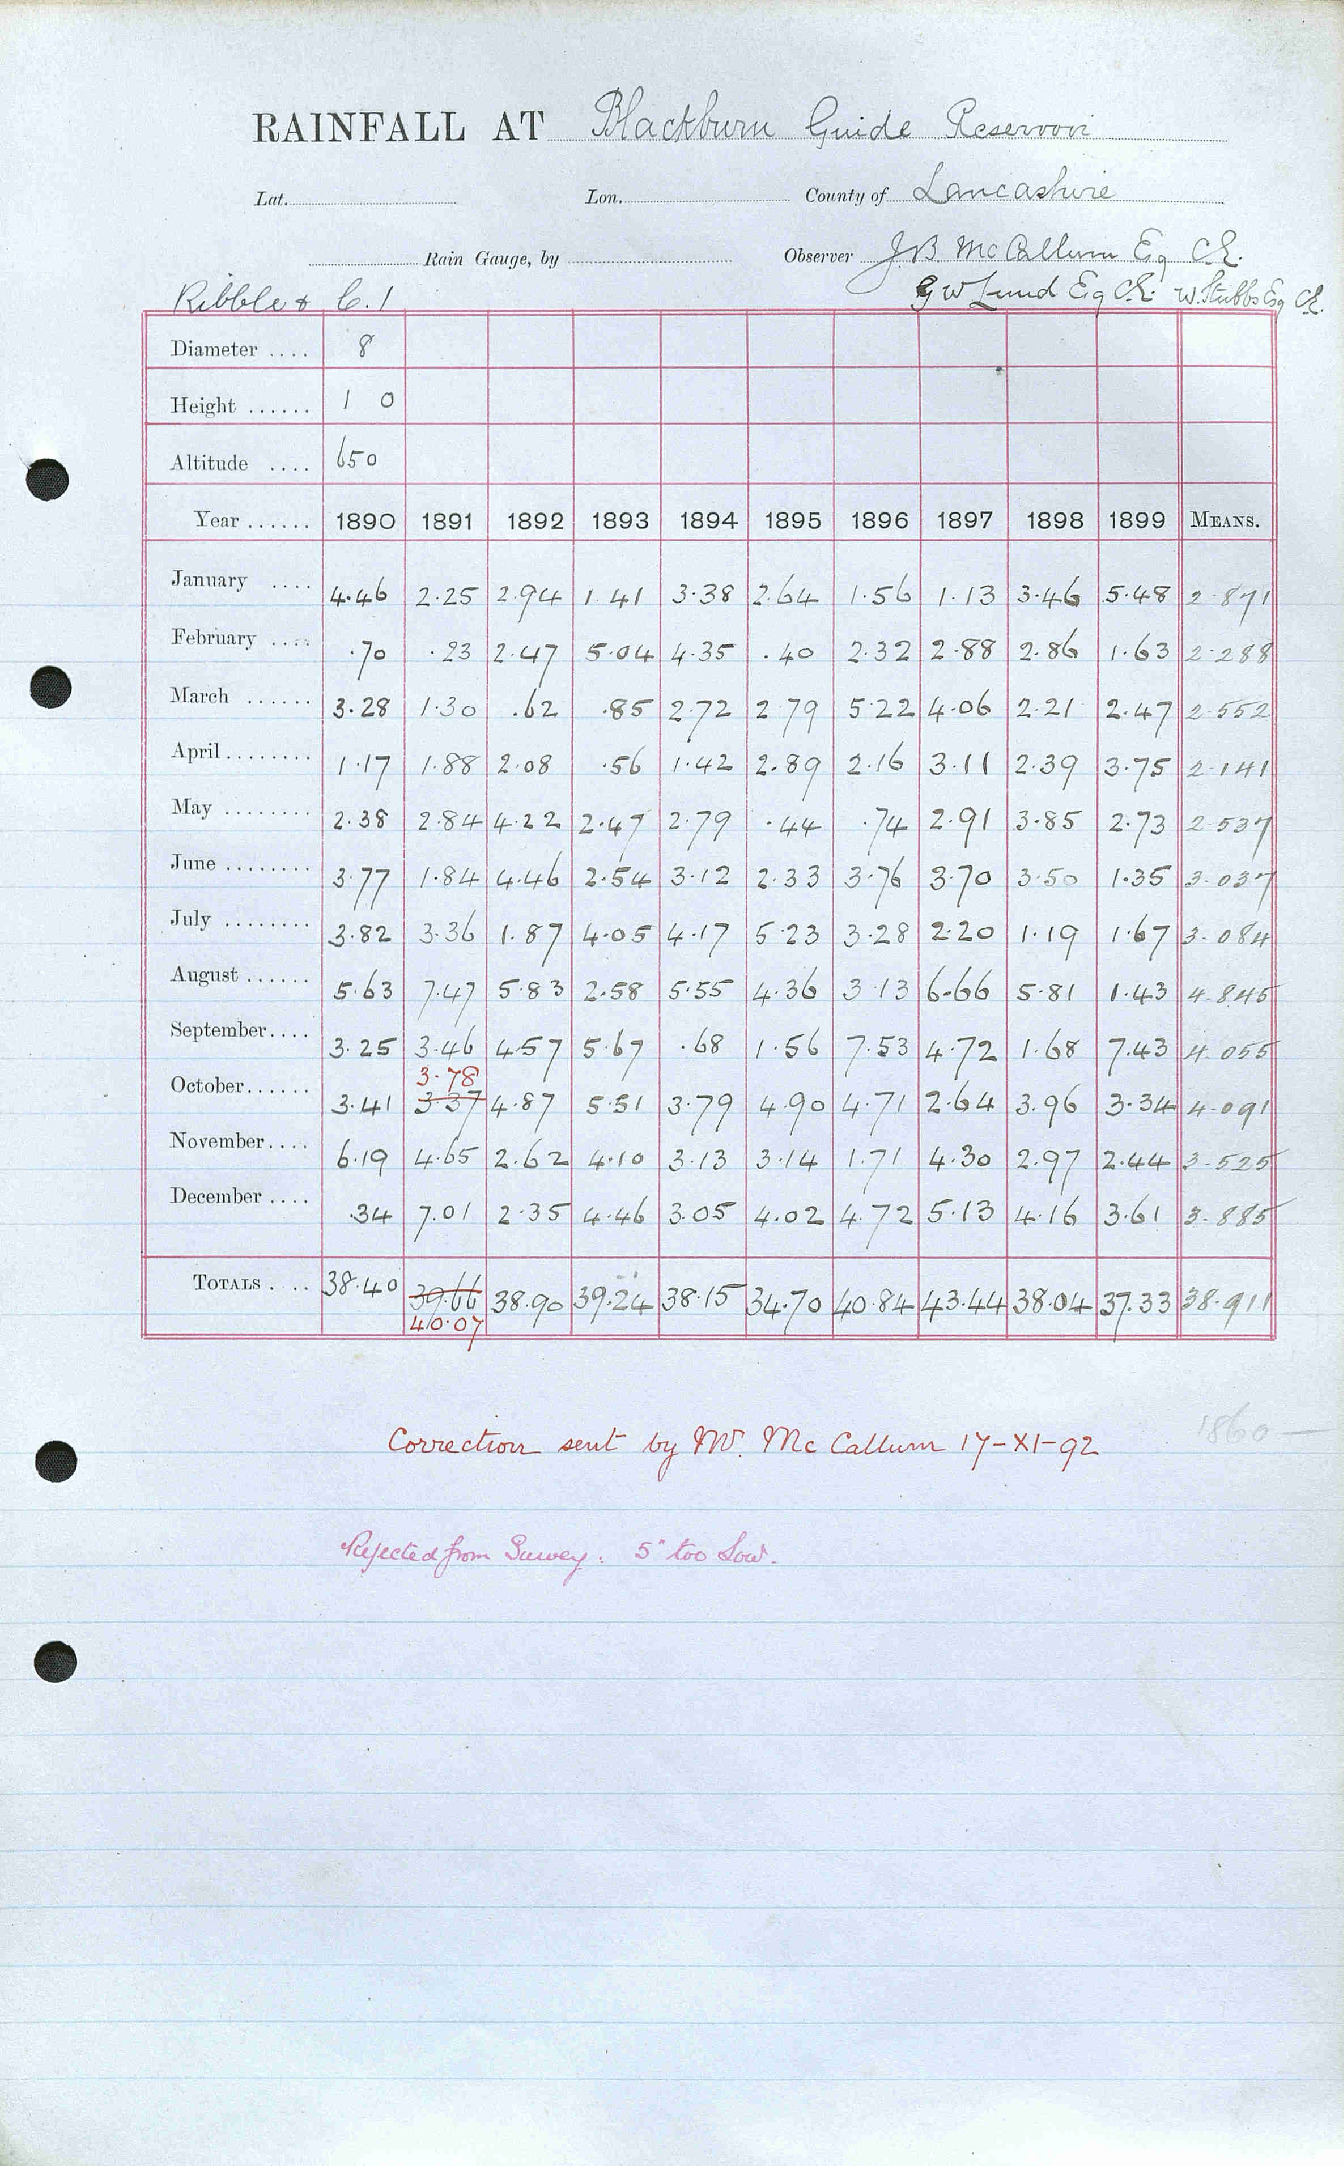 RAINFALL AT Blackburn Guide Reservoir
Lat. Lon. County of Lancashire
Rain Gauge, by Observer J B McCallum Esq C.E.
Ribble & C. 1 G W Lund Esq C.E. W. Stubbs Esq C.E.
Diameter .... 8
Height ...... 1 0
Altitude .... 650
Year ...... 1890 1891 1892 1893 1894 1895 1896 1897 1898 1899 MEANS.
January .... 4.46 2.25 2.94 1.41 3.38 2.64 1.56 1.13 3.46 5.48 2.871
February .... .70 .23 2.47 5.04 4.35 .40 2.32 2.88 2.86 1.63 2.288
March ...... 3.28 1.30 .62 .85 2.72 2.79 5.22 4.06 2.21 2.47 2.552
April ........ 1.17 1.88 2.08 .56 1.42 2.89 2.16 3.11 2.39 3.75 2.141
May ........ 2.38 2.84 4.22 2.47 2.79 .44 .74 2.91 3.85 2.73 2.537
June ........ 3.77 1.84 4.46 2.54 3.12 2.33 3.76 3.70 3.50 1.35 3.037
July ........ 3.82 3.36 1.87 4.05 4.17 5.23 3.28 2.20 1.19 1.67 3.084
August ...... 5.63 7.47 5.83 2.58 5.55 4.36 3.13 6.66 5.81 1.43 4.845
September .... 3.25 3.46 4.57 5.67 .68 1.56 7.53 4.72 1.68 7.43 4.055
3.78
October ...... 3.41 3.37 4.87 5.51 3.79 4.90 4.71 2.64 3.96 3.34 4.091
November .... 6.19 4.65 2.62 4.10 3.13 3.14 1.71 4.30 2.97 2.44 3.525
December .... .34 7.01 2.35 4.46 3.05 4.02 4.72 5.13 4.16 3.61 3.885
TOTALS .... 38.40 39.66 38.90 39.24 38.15 34.70 40.84 43.44 38.04 37.33 38.911
40.07
Correction sent by Mr. McCallum 17-XI-92 1860—
Rejected from Survey. 5" too low.